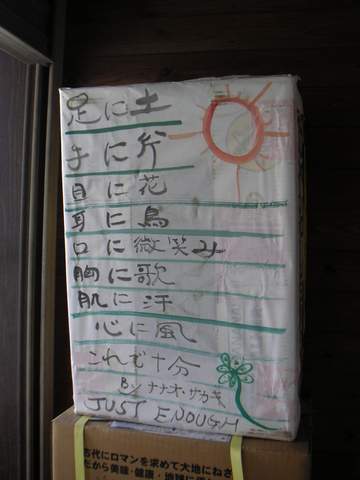 足に土
手に斧
目に花
耳に鳥
口に微笑み
胸に歌
肌に汗
心に風
これで十分
By ナナオ・サカキ
JUST ENOUGH
古代にロマンを求めて大地にねざ
だから美味・健康・地球に